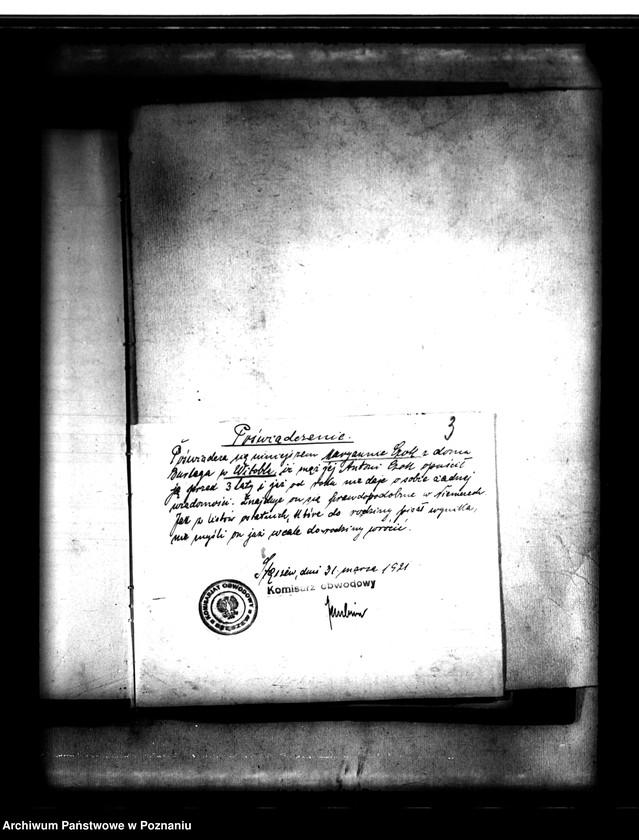 3
Poświadczenie.
Poświadcza się niniejszem Maryannie Szott z domu
w Witoblu, iż mąż jej Antoni Szott opuścił
ją przed 3 laty i już od roku nie daje o sobie żadnej
wiadomości. Znajduje on się prawdopodobnie w Niemczech.
Jak z listów ostatnich, które do rodziny pisał wynika,
nie myśli on już wcale do rodziny wrócić.
Stęszew, dni 31. marca 1921
Komisarz obwodowy
KOMISARJAT OBWODOWY
Archiwum Państwowe w Poznaniu